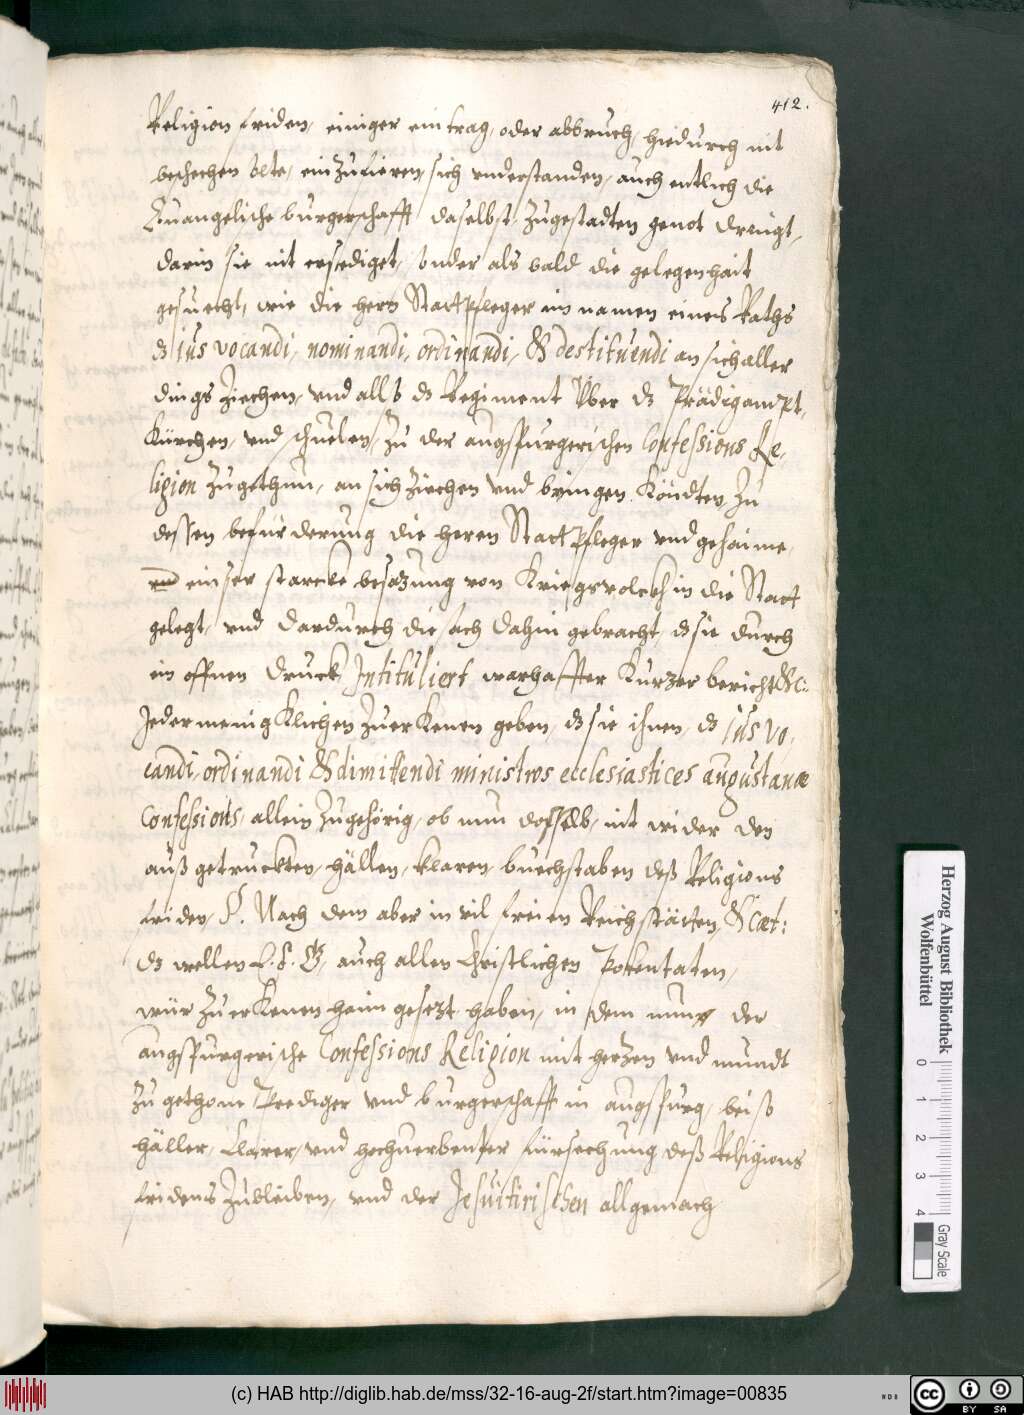 412.
Religion friden, einiger eintrag, oder abbruch, hiedurch nit
beschechen solte, einzufieren, sich understanden, auch entlich die
Euangelische burgerschafft daselbst zugestadten genot drengt,
darin sie nit ersediget, sonder als bald die gelegenhait
gesuecht, wie die hern Stattpfleger im namen eines Raths
dz ius vocandi, nominandi, ordinandi, & destituendi an sich aller
dings ziechen, vnd alls dz Regiment Über dz Prädigampt,
Kürchen, vnd schuelen, zu der augspurgerischen Confessions Re,
ligion zugethun, an sich ziechen vnd bringen Köndten, zu
dessen befürderung die heren Stattpfleger vnd gehaime,
ein starcke besazung von Kriegsvolckh in die Statt
gelegt, vnd dardurch die sach dahin gebracht, dz sie durch
ein offnen druck Intituliert warhaffter Kurzer bericht &c:
Jedermenigklichen zuerkenen geben, dz sie ihnen, dz ius vo,
candi, ordinandi & dimittendi ministros ecclesiastices augustanæ
Confessionis, allein zugehörig, ob nun dasselb, nit wider den
außgetruckten, hällen, klaren, buechstaben deß Religions
friden, P. Nach dem aber in vil freien Reichstätten, & cæt:
dz wellen E. E. G, auch allen Christlichen Potentaten,
wür zuerkenen haimgesezt haben, in dem nun der
augspurgerische Confessions Religion mit herzen vnd mundt
zugethone Prediger vnd burgerschafft in augspurg, bei so
häller, klarer, vnd hochuerbenter fürsechung deß Religions
fridens zubleiben, vnd der Jesuitirischen allgemach
Herzog August Bibliothek
Wolfenbüttel
0 1 2 3 4
Gray Scale
(c) HAB http://diglib.hab.de/mss/32-16-aug-2f/start.htm?image=00835
cc BY SA